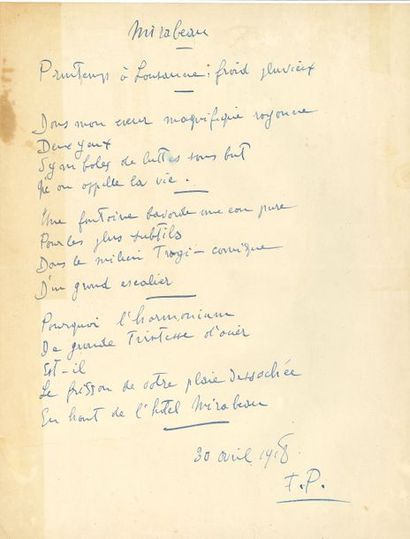 Mirabeau
Printemps à Lausanne : froid pluvieux
Dans mon cœur magnifique rayonne
Deux yeux
Symboles de luttes sans but
Qu'on appelle la vie.
Une fontaine bavarde une eau pure
Pour les plus subtils
Dans le milieu Tragi-comique
D'un grand escalier
Pourquoi l'harmonium
De grande Tristesse d'
Est-il
Le frisson de votre plaie dessochée
En haut de l'hôtel Mirabeau
30 avril 1918.
F.P.